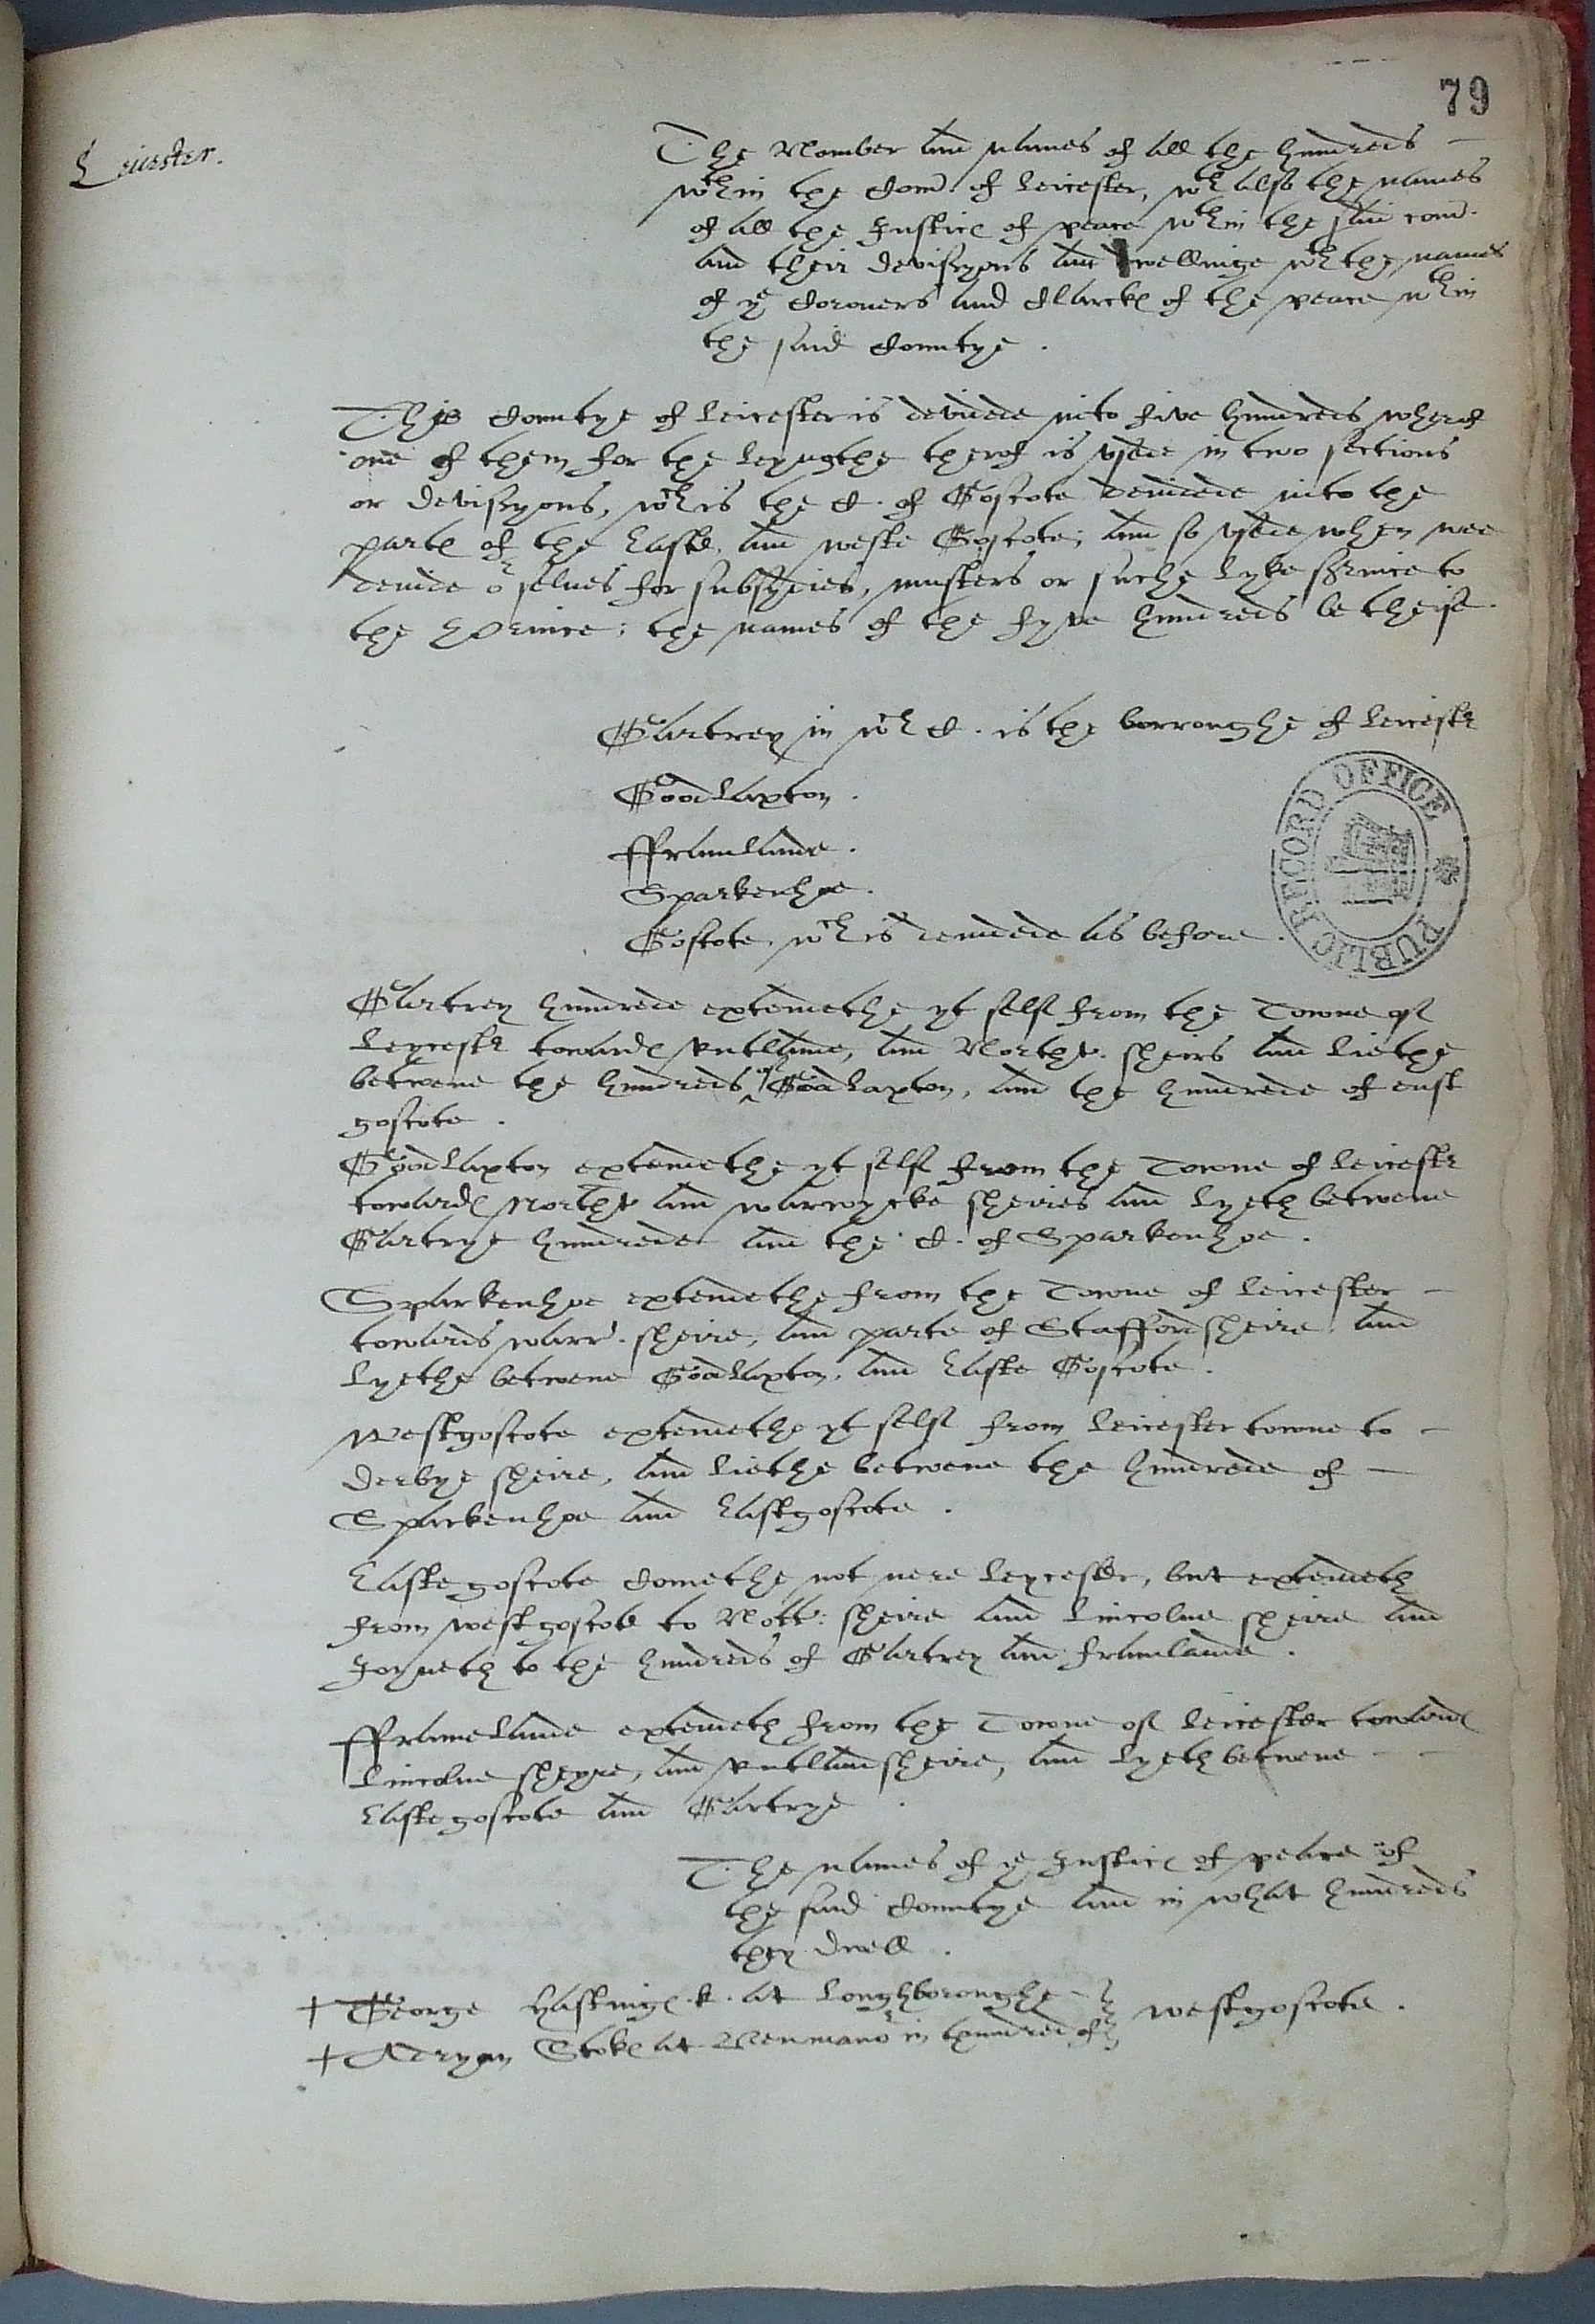 79
Leicester.
The Nomber and names of all the hundreds
wth in the Com̄ of Leicester, wth also the names
of all the Justices of peace wth in the said com̄.
and their devissyons and dwellinge wth the names
of ye Coroners and Clarckes of the peace wth in
the said Countye.
This Countye of Leicester is devided into five hundreds wherof
one of them for the leyngthe therof is vsed in two sections
or devissyons, wch is the C. of Goscote devided into the
partes of the Easte, and weste Goscote; and so vsed when wee
devide or selues for subsydies, musters or suche lyke service to
the Prince; the names of the fyve hundreds be theise.
Gartrey in wch C. is the borroughe of Leicestr
Goodlaxton.
fframland.
Sparkenhoe.
Goscote, wch is devided as before.
PUBLIC RECORD OFFICE
Gartrey hundred extendethe yt self from the Towne of
Leycestr towardes Rutland, and Northt. sheirs and liethe
betwene the hundreds of Goodlaxton, and the hundrede of east
goscote.
Goodlaxton extendethe yt self from the Towne of Leicestr
towardes Northt and warwycke sheires and lyeth betwene
Gartrye hundrede and the C. of Sparkenhoe.
Sparkenhoe extendethe from the Towne of Leicester
towards warr. sheire, and parte of Staffordsheire, and
lyethe betwene Goodlaxton, and Easte Goscote.
Westgoscote extendethe yt self from Leicester towne to
Derbye sheire, and liethe betwene the hundrede of
Sparkenhoe and Eastgoscote.
Easte goscote Comethe not nere Leycester, but extendeth
from westgoscote to Nott: sheire and Lincolne sheire and
Joyneth to the hundreds of Gartrey and framland.
fframeland extendeth from the Towne of Leicester towardes
Lincolne sheyre, and Rutlandsheire, and lyeth betwene
Easte goscote and Gartrye.
The names of ye Justices of peace of
the said Countye and in what hundreds
they dwell.
+ George Hastinges .k. at Loughboroughe
+ Adryan Stokes at in hundred of westgoscote.